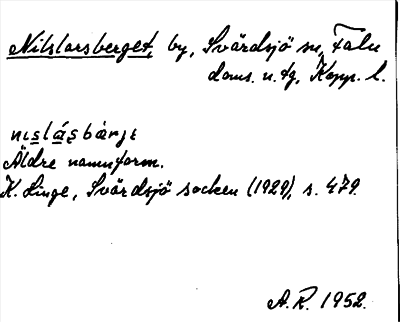 Nilslarsberget, by, Svärdsjö sn, Falu
doms. n. tg, Kopp. l.
nɪslásbàrjɛ
Äldre namnform.
K. Linge, Svärdsjö socken (1929), s. 479.
A. R. 1952.